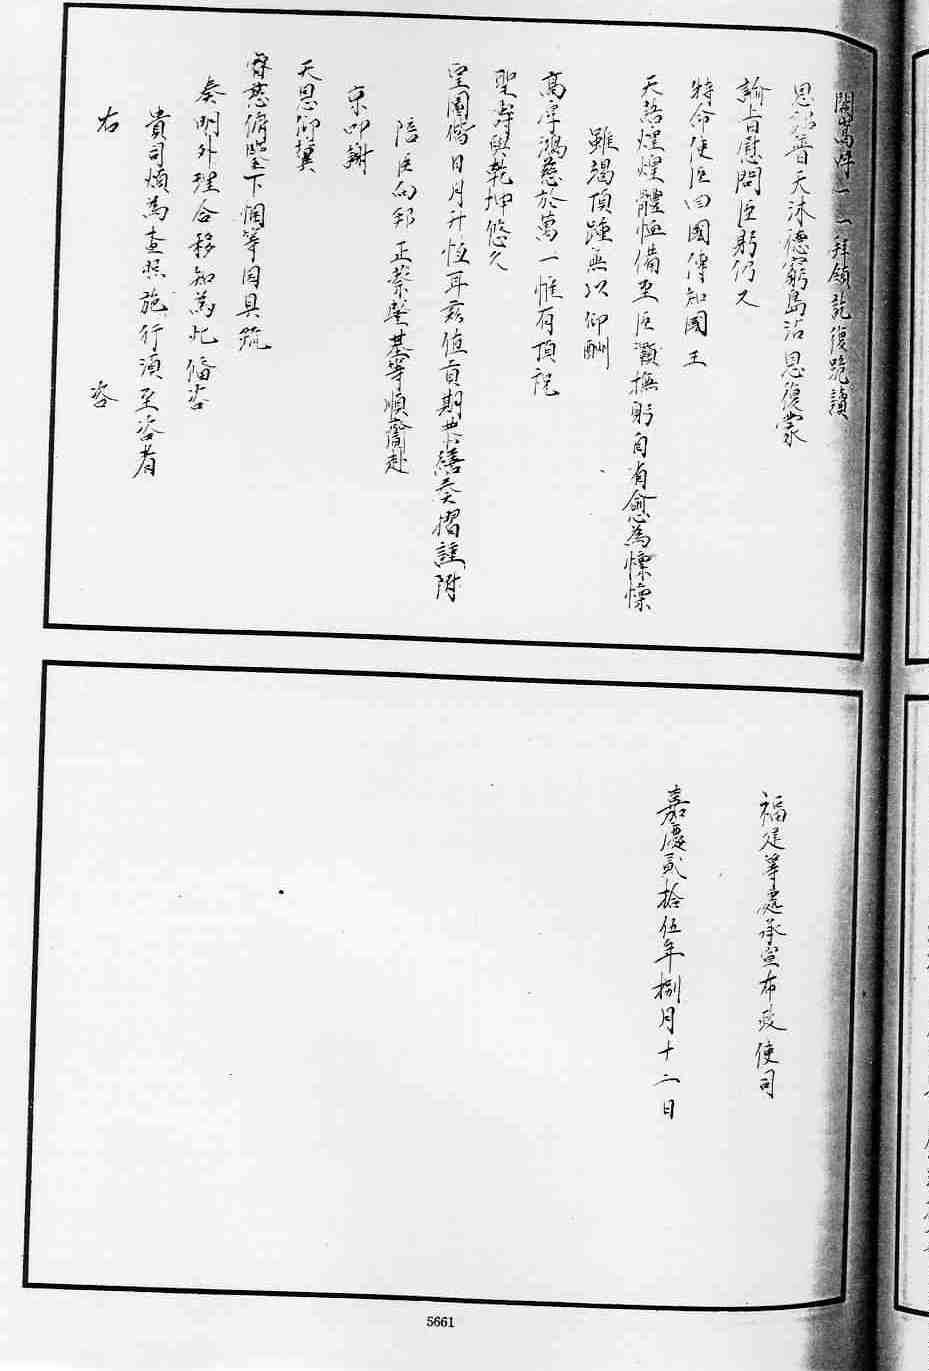 闕嵩呼一一拜領訖復跪讀
恩詔普天沐德窮島沾恩復蒙
諭旨慰問臣躬仍又
特命使臣回國傳知國王
天語煌煌體恤備至臣灝撫躬自省愈為慄慄
雖竭頂踵無以仰酬
高厚鴻慈於萬一惟有頂祝
聖壽與乾坤悠久
皇圖偕日月升恆耳茲值貢期恭繕奏摺謹附
陪臣向邦正蔡肇基等順齎赴
京叩謝
天恩仰冀
睿慈俯鑒下悃等因具疏
奏明外理合移知為此備咨
貴司煩為查照施行須至咨者
右 咨
福建等處承宣布政使司
嘉慶貳拾伍年捌月十二日
5661